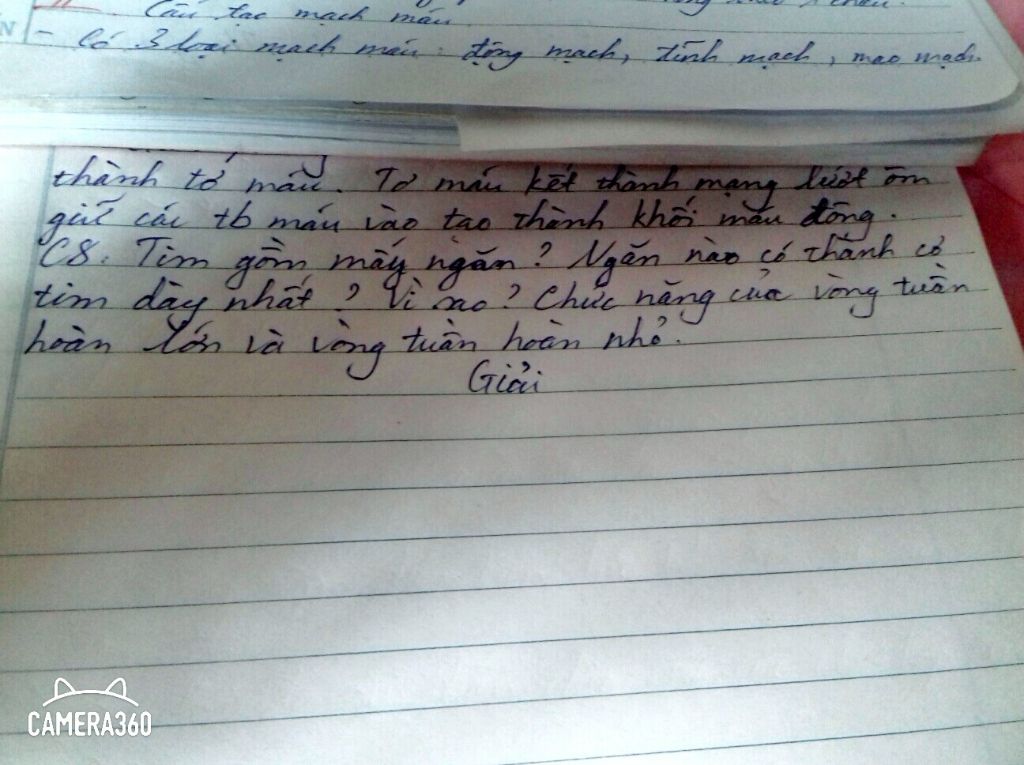 Cấu tạo mạch máu
- Có 3 loại mạch máu: động mạch, tĩnh mạch, mao mạch.
thành tơ máu. Tơ máu kết thành mạng lưới ôm
giữ các tb máu vào tạo thành khối máu đông.
C8: Tim gồm mấy ngăn? Ngăn nào có thành cơ
tim dày nhất? Vì sao? Chức năng của vòng tuần
hoàn lớn và vòng tuần hoàn nhỏ.
Giải
CAMERA360